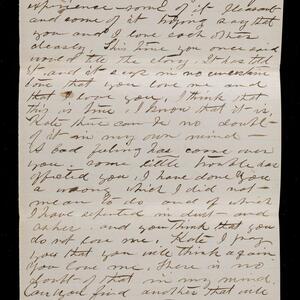 experience - some of it pleasant
and some of it trying say that
you and I love each other
dearly. This time you once said
would tell the story. It has told
it, and it says in no uncertain
tone that you love me and
that I love you. I think that
this is true, I know that it is.
Kate there can be no doubt
of it in my own mind -
A bad feeling has come over
you. some little trouble has
affected you, I have done you
a wrong which I did not
mean to do and of which
I have repented in dust and
ashes. and you think that you
do not love me. Kate I pray
you that you will think again.
You love me. There is no
doubt of that in my mind.
Can you find another that will